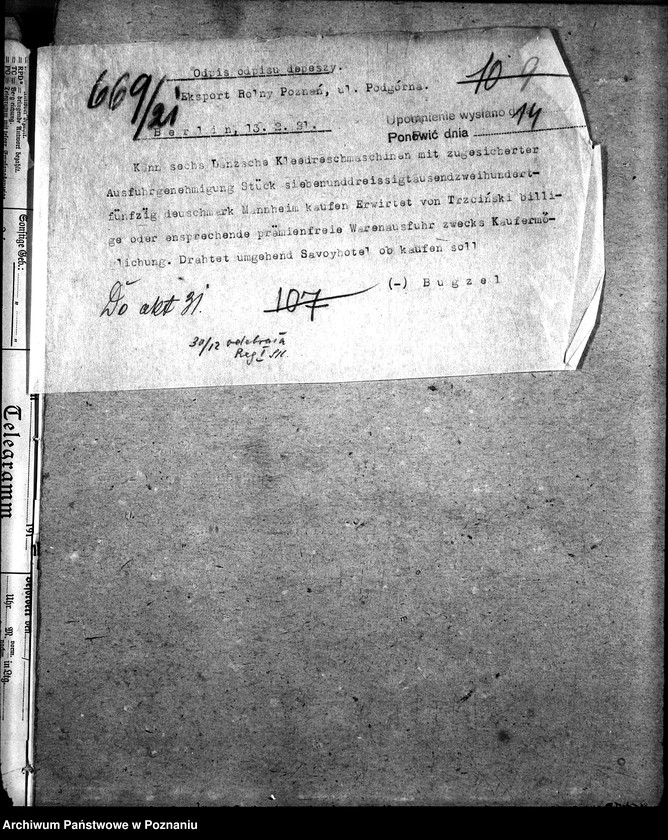 Odpis odpisu depeszy.
669/21
10 9
Eksport Rolny Poznań, ul. Podgórna.
Upomnienie wysłano d
14
Berlin, 13. 2. 21.
Ponowić dnia
Kann sechs Lanzsche Kleedreschmaschinen mit zugesicherter
Ausfuhrgenehmigung Stück siebenunddreissigtausendzweihundert-
fünfzig deuschmark Mannheim kaufen Erwirtet von Trzciński billi-
ge oder ensprechende prämienfreie Warenausfuhr zwecks Kaufermö-
lichung. Drahtet umgehend Savoyhotel ob kaufen soll
(-) Bugzel
Do akt 31.
107
30/12 odebrała
Reg I
Telegramm
Sonstige Geb.:
191
Uhr
in Ltg.
Archiwum Państwowe w Poznaniu